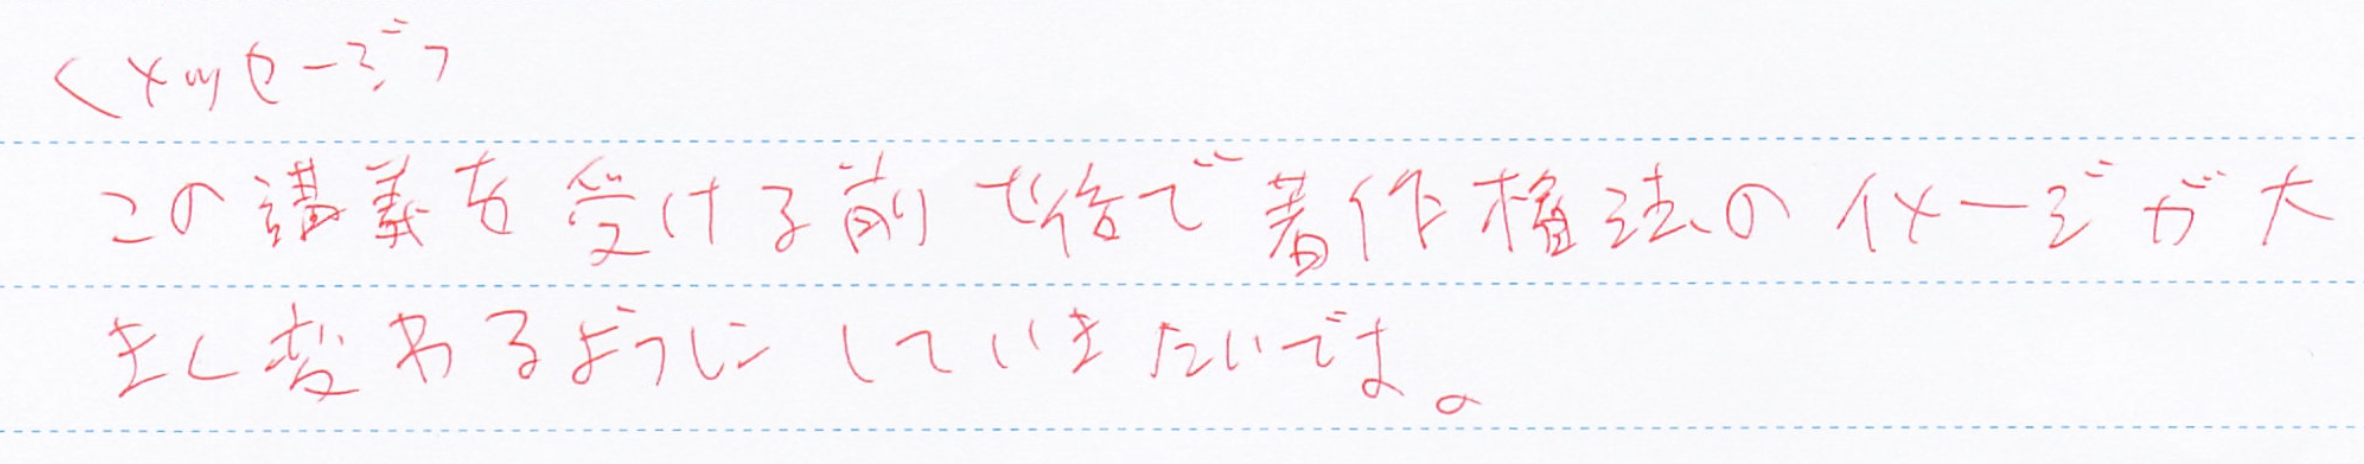 <メッセージ>
この講義を受ける前と後で著作権法のイメージが大
きく変わるようにしていきたいです。